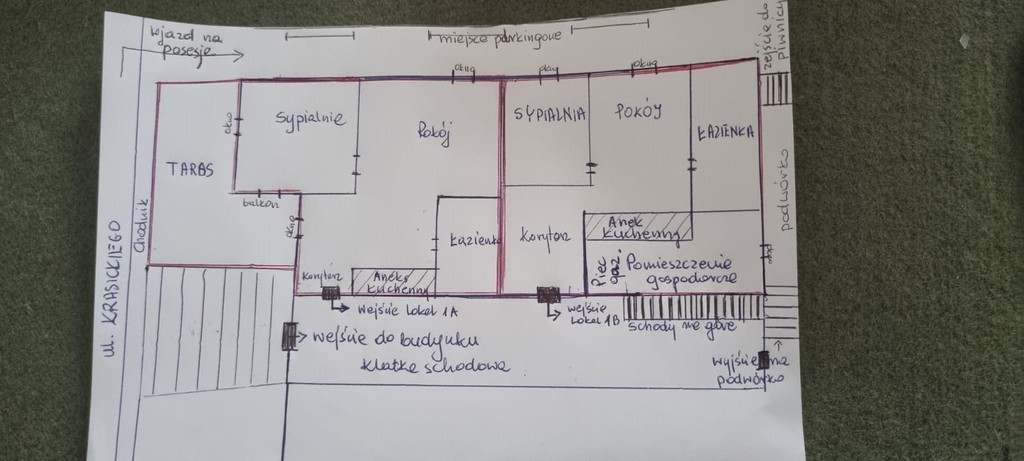 wjazd na
posesję
miejsce parkingowe
zejście do
piwnicy
okno
okno
okno
Sypialnie
Pokój
SYPIALNIA
POKÓJ
ŁAZIENKA
okno
TARAS
balkon
okno
Chodnik
ul. KRASICKIEGO
podwórko
Łazienka
Korytarz
Anek
kuchenny
Piec
gaz
Pomieszczenie
gospodarcze
okno
korytarz
Aneks
kuchenny
wejście lokal 1A
wejście
lokal 1B
schody na górę
wejście do budynku
klatka schodowa
wyjście na
podwórko